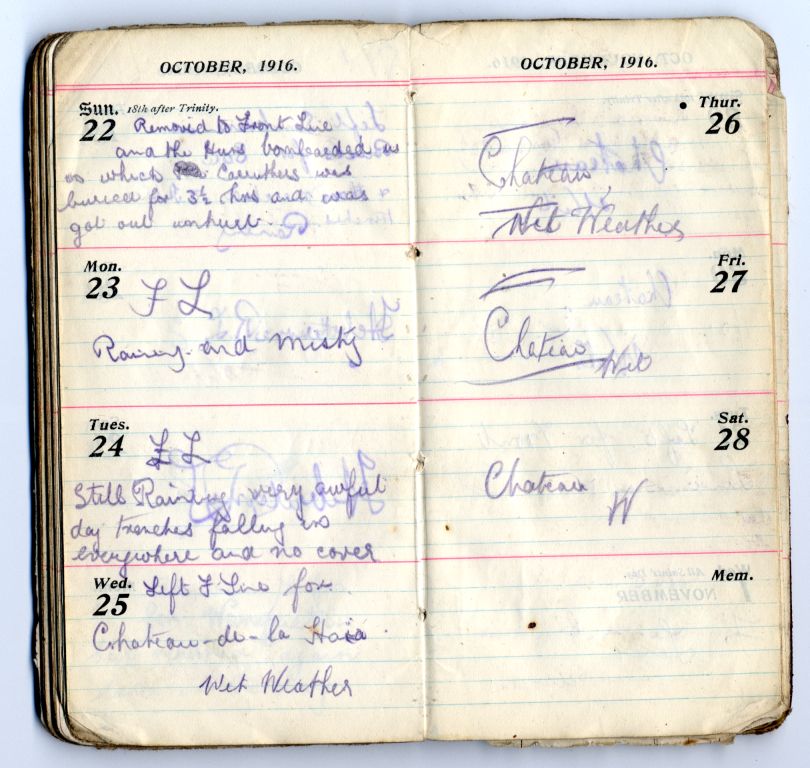 OCTOBER, 1916.
Sun. 18th after Trinity.
22 Removed to Front Line
and the Huns bombarded us
in which Carruthers was
burried for 3½ hrs and was
got out unhurt.
Mon.
23 F L
Rainy and Misty
Tues.
24 F L
Still Raining very awful
day trenches falling in
everywhere and no cover
Wed. Left F Line for
25
Chateau-de-la Haie
Wet Weather
OCTOBER, 1916.
Thur.
26
Chateau
Wet Weather
Fri.
27
Chateau Wet
Sat.
28
Chateau
W
Mem.